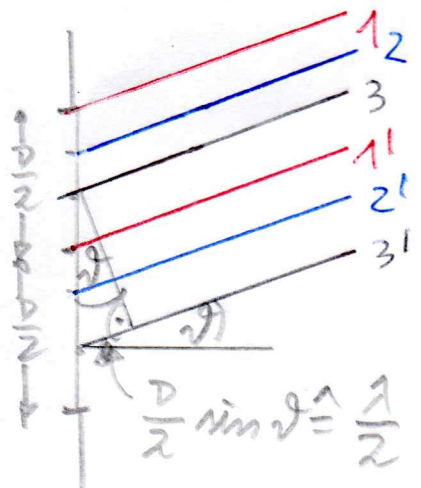 1
2
3
1'
2'
3'
D/2
D/2
ϑ
ϑ
D/2 sin ϑ ≙ λ/2